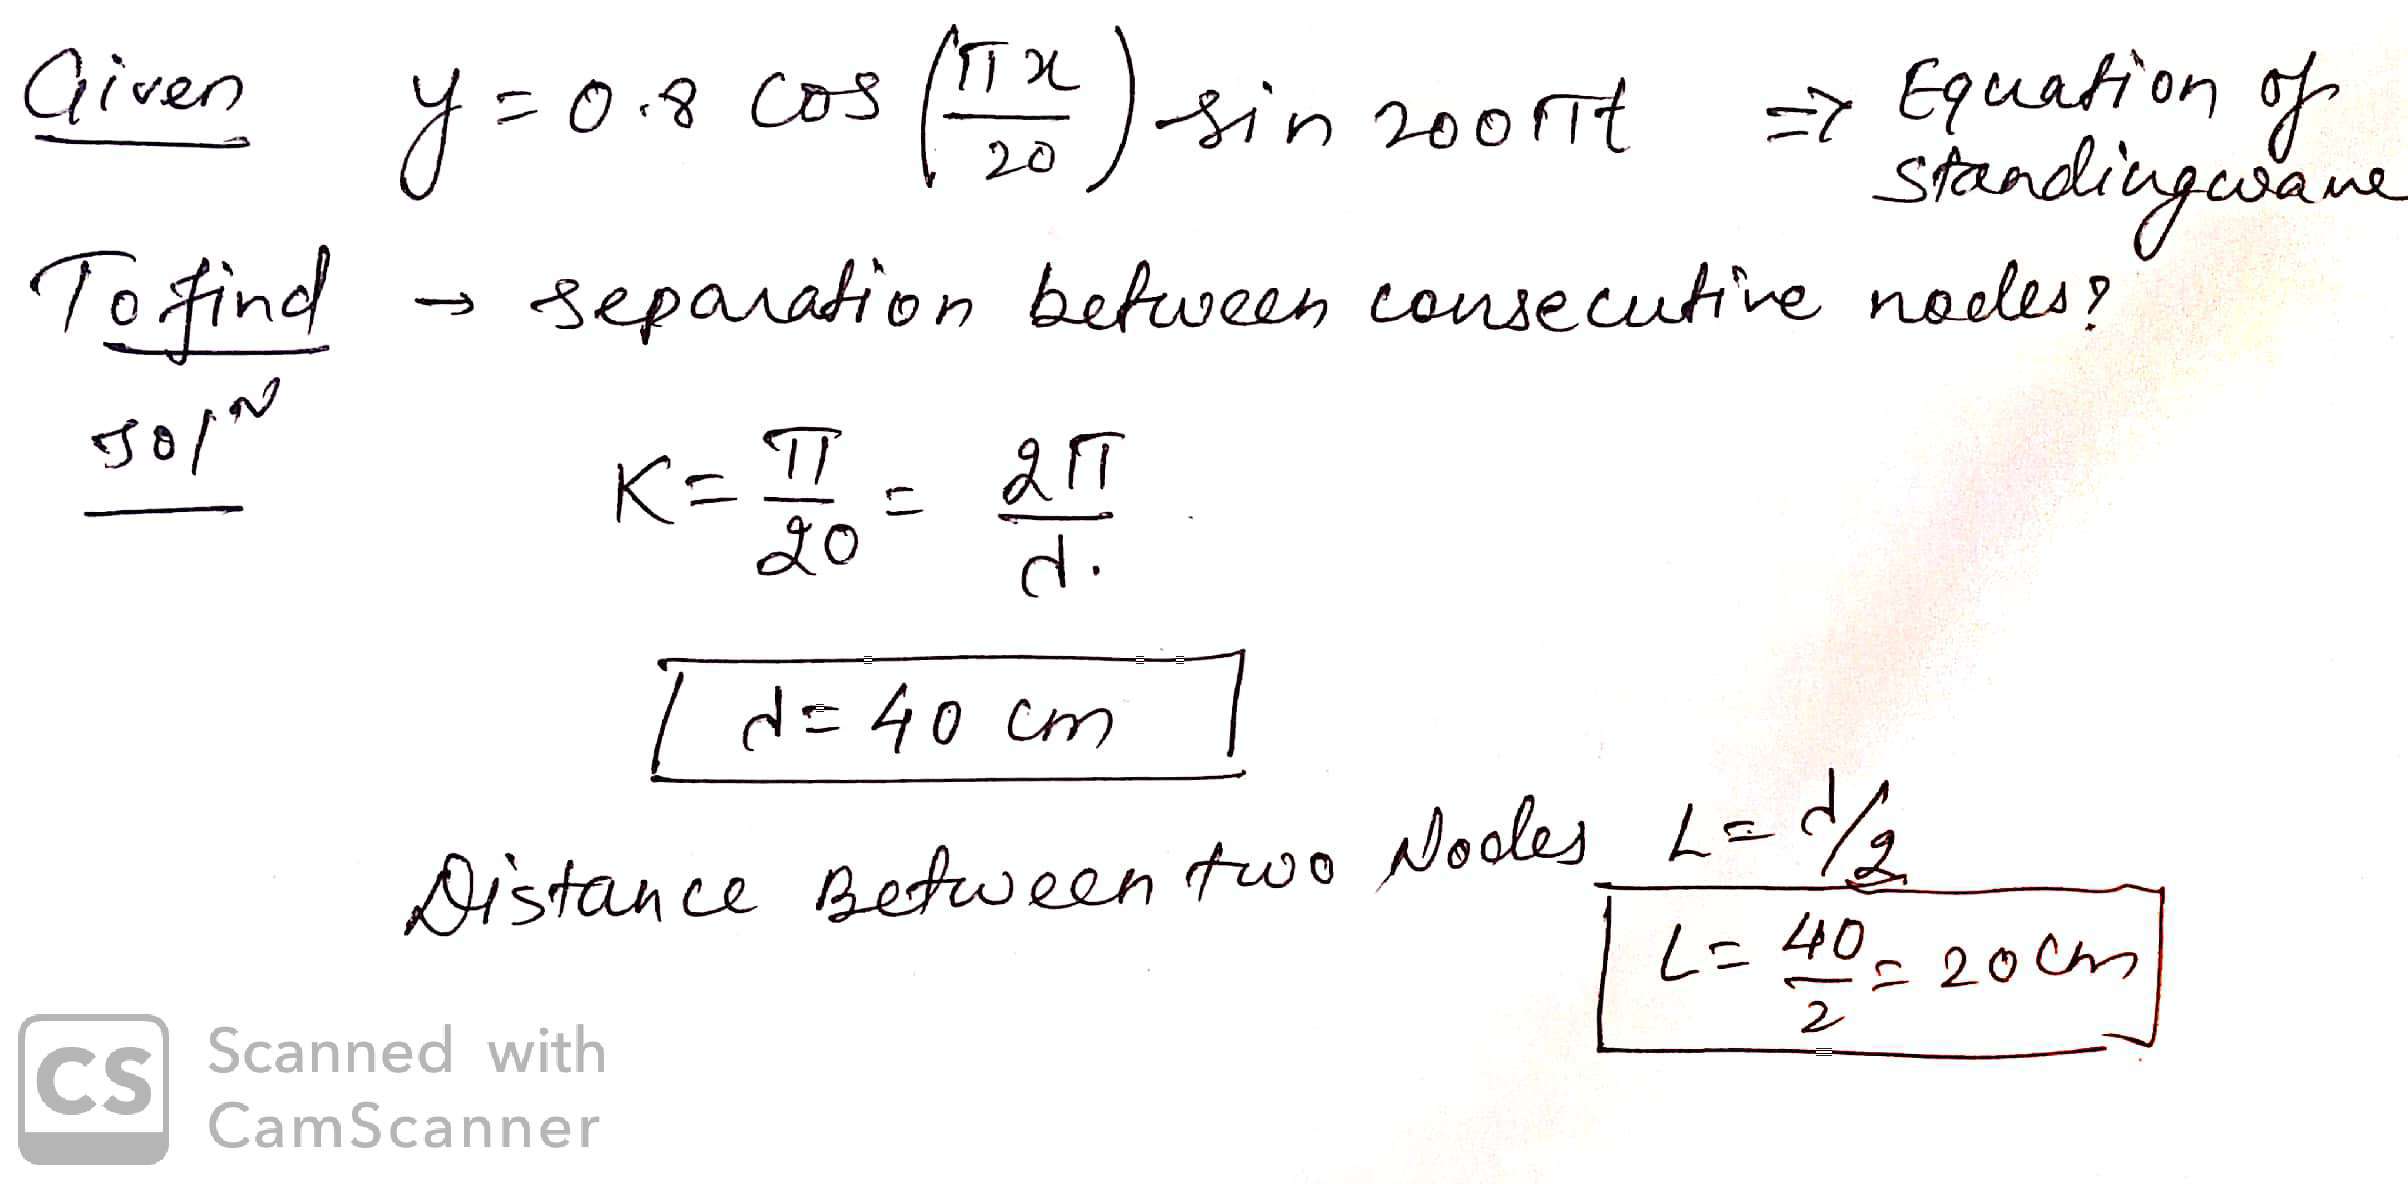 Given y = 0.8 cos (πx/20) sin 200πt ⇒ Equation of
standingwave
To find → separation between consecutive nodes?
solN
K = π/20 = 2π/d.
d = 40 cm
Distance Between two Nodes L = d/2
L = 40/2 = 20 cm
CS Scanned with
CamScanner